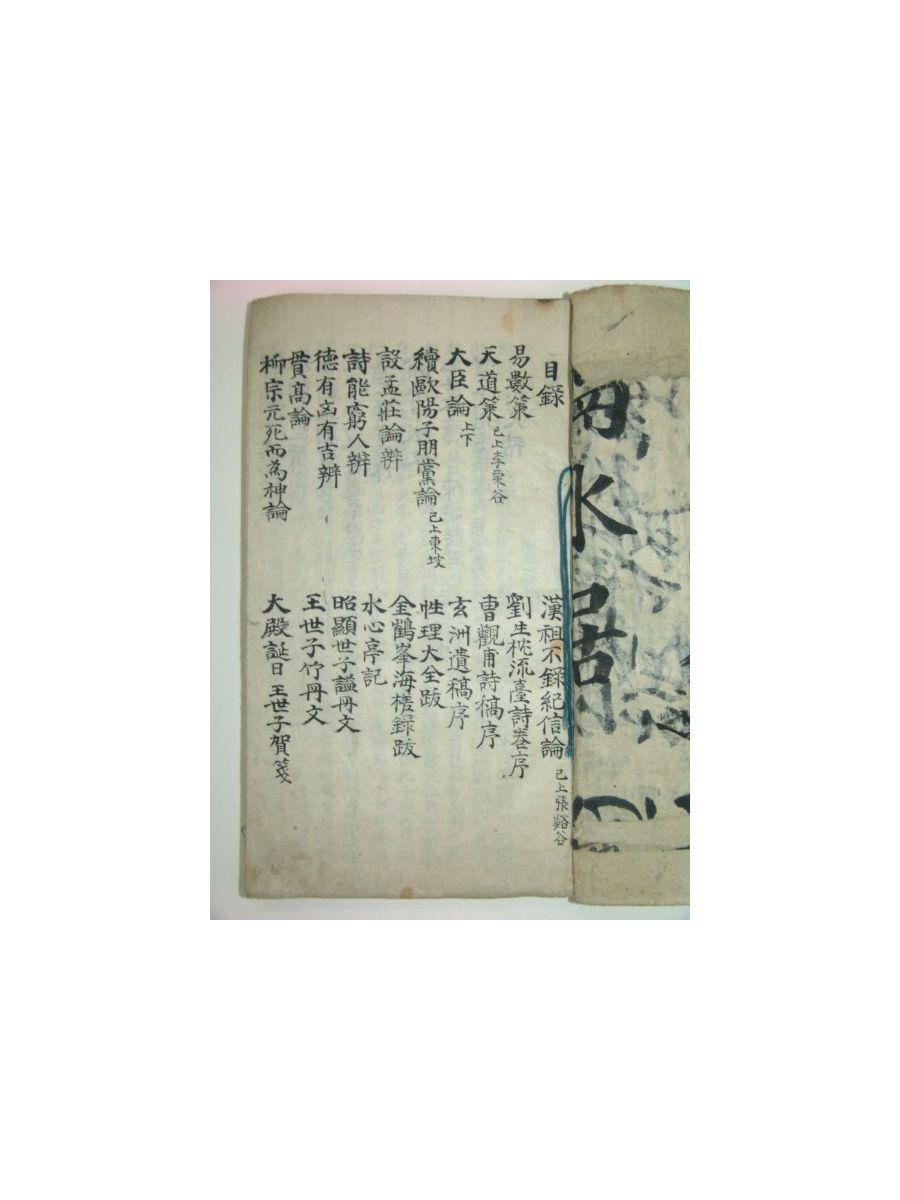 目錄
易數策
天道策 已上李栗谷
大臣論 上下
續歐陽子朋黨論 已上東坡
設孟莊論辨
詩能窮人辨
德有凶有吉辨
貫高論
柳宗元死而爲神論
漢祖不錄紀信論 已上張谿谷
劉生枕流臺詩卷序
曹觀甫詩稿序
玄洲遺稿序
性理大全跋
金鶴峯海槎錄跋
水心亭記
昭顯世子謚冊文
王世子竹冊文
大殿誕日王世子賀箋
水居